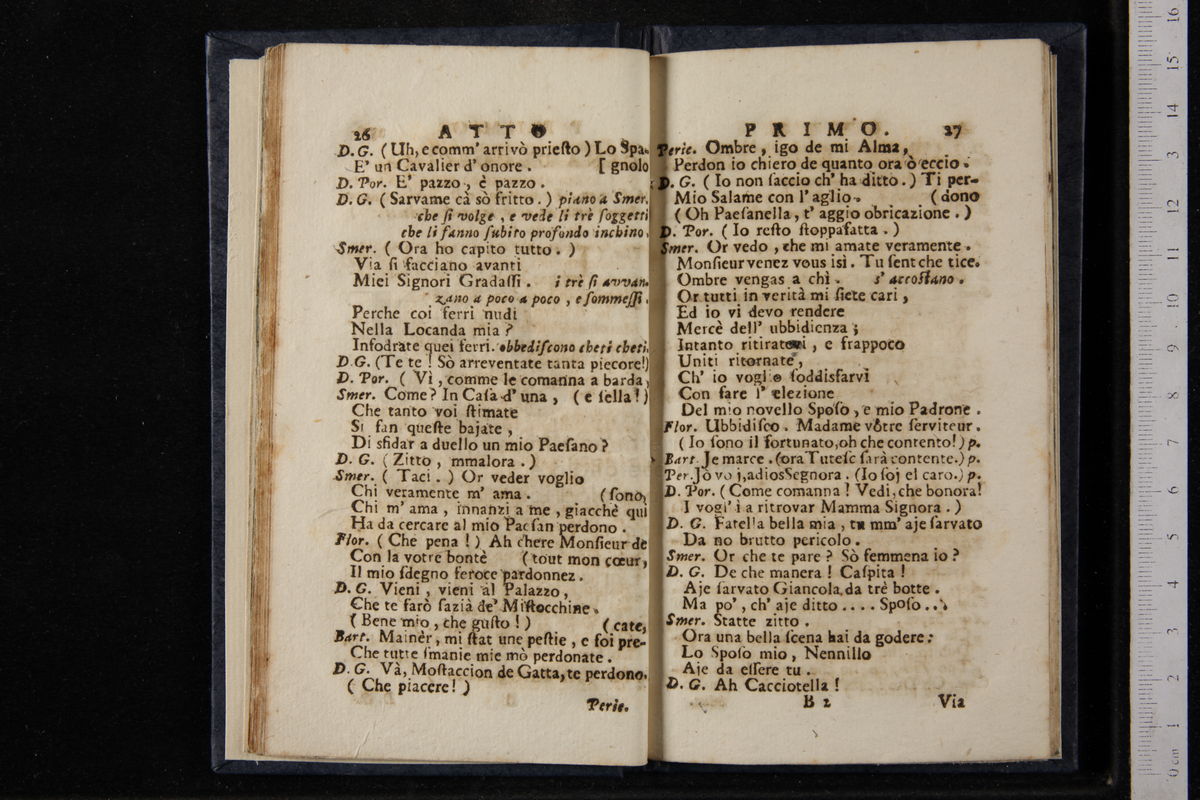 26 ATTO
D. G. (Uh, e comm' arrivò priesto) Lo Spa-
E' un Cavalier d' onore. [gnolo
D. Por. E' pazzo, è pazzo.
D. G. (Sarvame cà sò fritto.) piano a Smer.
che si volge, e vede li trè soggetti
che li fanno subito profondo inchino.
Smer. (Ora ho capito tutto.)
Via si facciano avanti
Miei Signori Gradassi. i trè si avvan-
zano a poco a poco, e sommessi.
Perche coi ferri nudi
Nella Locanda mia?
Infodrate quei ferri. obbediscono cheti cheti.
D. G. (Te te! Sò arreventate tanta piecore!)
D. Por. (Vì, comme le comanna a barda,
Smer. Come? In Casa d' una, (e sella!)
Che tanto voi stimate
Si fan queste bajate,
Di sfidar a duello un mio Paesano?
D. G. (Zitto, mmalora.)
Smer. (Taci.) Or veder voglio
Chi veramente m' ama. (sono,
Chi m' ama, innanzi a me, giacchè qui
Ha da cercare al mio Paesan perdono.
Flor. (Che pena!) Ah chere Monsieur de
Con la votre bontè (tout mon cœur,
Il mio sdegno feroce pardonnez.
D. G. Vieni, vieni al Palazzo,
Che te farò sazià de' Mistocchine.
(Bene mio, che gusto!) (cate,
Bart. Mainèr, mi stat une pestie, e foi pre-
Che tutte smanie mie mò perdonate.
D. G. Và, Mostaccion de Gatta, te perdono.
(Che piacere!)
Perie.
PRIMO. 27
Perie. Ombre, igo de mi Alma,
Perdon io chiero de quanto ora ò eccio.
D. G. (Io non saccio ch' ha ditto.) Ti per-
Mio Salame con l' aglio. (dono
(Oh Paesanella, t' aggio obricazione.)
D. Por. (Io resto stoppafatta.)
Smer. Or vedo, che mi amate veramente.
Monsieur venez vous isì. Tu sent che tice.
Ombre vengas a chì. s' accostano.
Or tutti in verità mi siete cari,
Ed io vi devo rendere
Mercè dell' ubbidienza;
Intanto ritiratevi, e frappoco
Uniti ritornate,
Ch' io voglio soddisfarvi
Con fare l' elezione
Del mio novello Sposo, e mio Padrone.
Flor. Ubbidisco. Madame vôtre serviteur.
(Io sono il fortunato, oh che contento!) p.
Bart. Je marce. (ora Tutesc sarà contente.) p.
Per. Jò vo j, adios Segnora. (Io soj el caro.) p.
D. Por. (Come comanna! Vedi, che bonora!
I vogl' ì a ritrovar Mamma Signora.)
D. G. Fatella bella mia, tu mm' aje sarvato
Da no brutto pericolo.
Smer. Or che te pare? Sò femmena io?
D. G. De che manera! Caspita!
Aje sarvato Giancola da trè botte.
Ma po', ch' aje ditto.... Sposo...
Smer. Statte zitto.
Ora una bella scena hai da godere:
Lo Sposo mio, Nennillo
Aje da essere tu.
D. G. Ah Cacciotella!
B 2 Via
0 cm 1 2 3 4 5 6 7 8 9 10 11 12 3 14 15 16